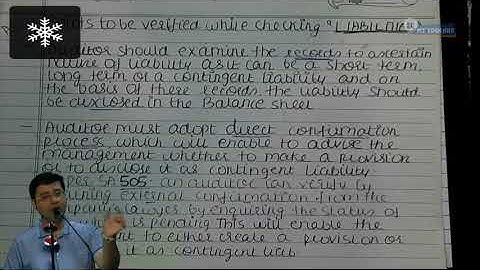 to be verified while checking "LIABILITIES
Auditor should examine the records to ascertain
nature of liability as it can be a short term,
long term or a contingent liability and on
the basis of these records the liability should
be disclosed in the Balance sheet
- Auditor must adopt direct confirmation
process which will enable to advise the
management whether to make a provision
or to disclose it as contingent liability
per SA 505 an auditor can verify by
external confirmation from the
lawyer by enquiring the status of
is pending. This will enable the
to either create a provision or
it as contingent